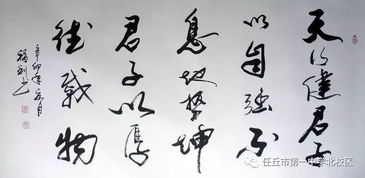 天行健君子
以自强不
息地势坤
君子以厚
德載物
辛卯年月
书
任丘市第一中学北校区